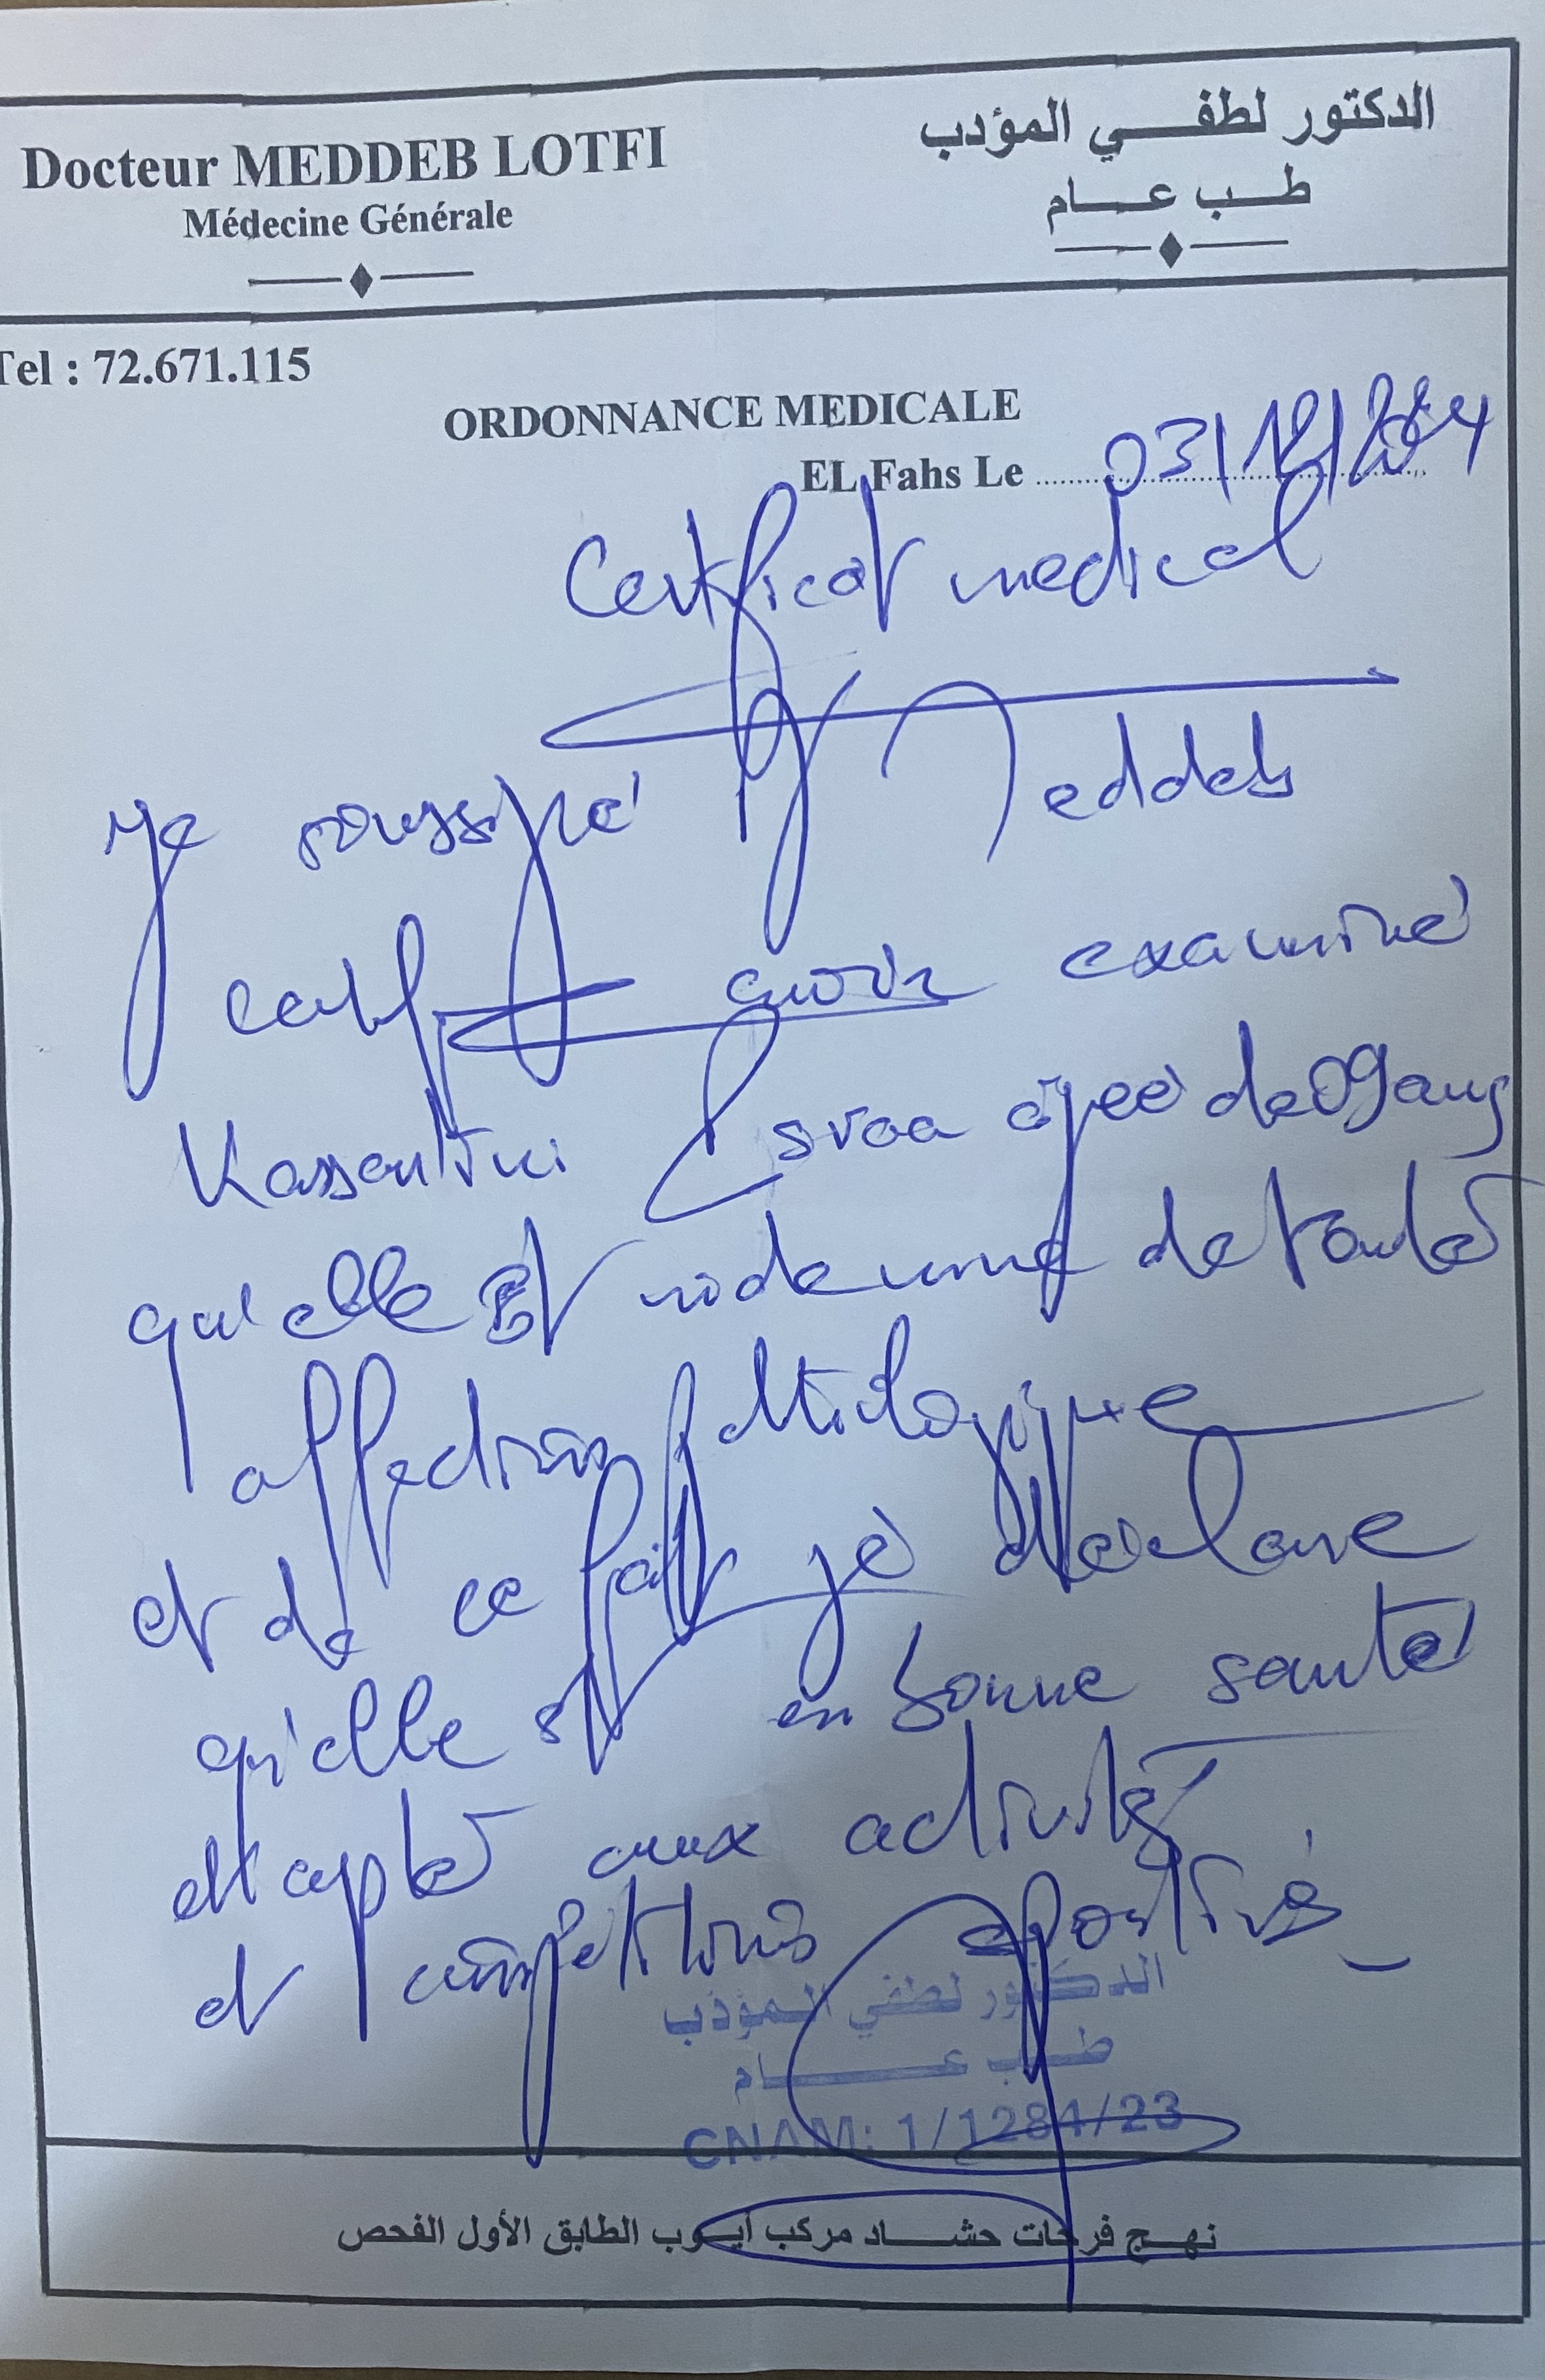 Docteur MEDDEB LOTFI
Médecine Générale
الدكتور لطفي المؤدب
طب عام
Tel : 72.671.115
ORDONNANCE MEDICALE
EL Fahs Le 03/12/2024
Certificat medical
Je soussigné Dr Meddeb
certifie avoir examiné
Kassentini Esraa agée de 09 ans
qu'elle est indemne de toute
affection pathologique
et de ce fait je déclare
qu'elle est en bonne santé
et apte aux activités
et compétitions sportives
الدكتور لطفي المؤدب
طب عام
CNAM: 1/1284/23
نهج فرحات حشاد مركب أيوب الطابق الأول الفحص